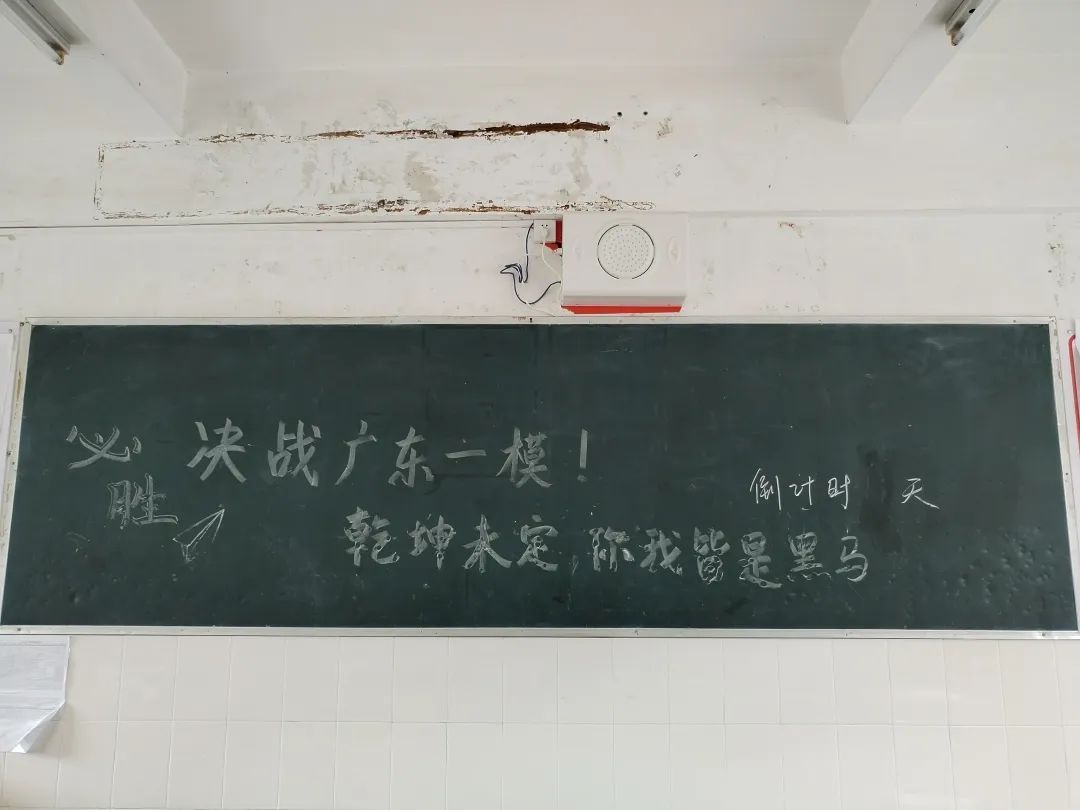 必胜
决战广东一模！
倒计时 天
乾坤未定，你我皆是黑马